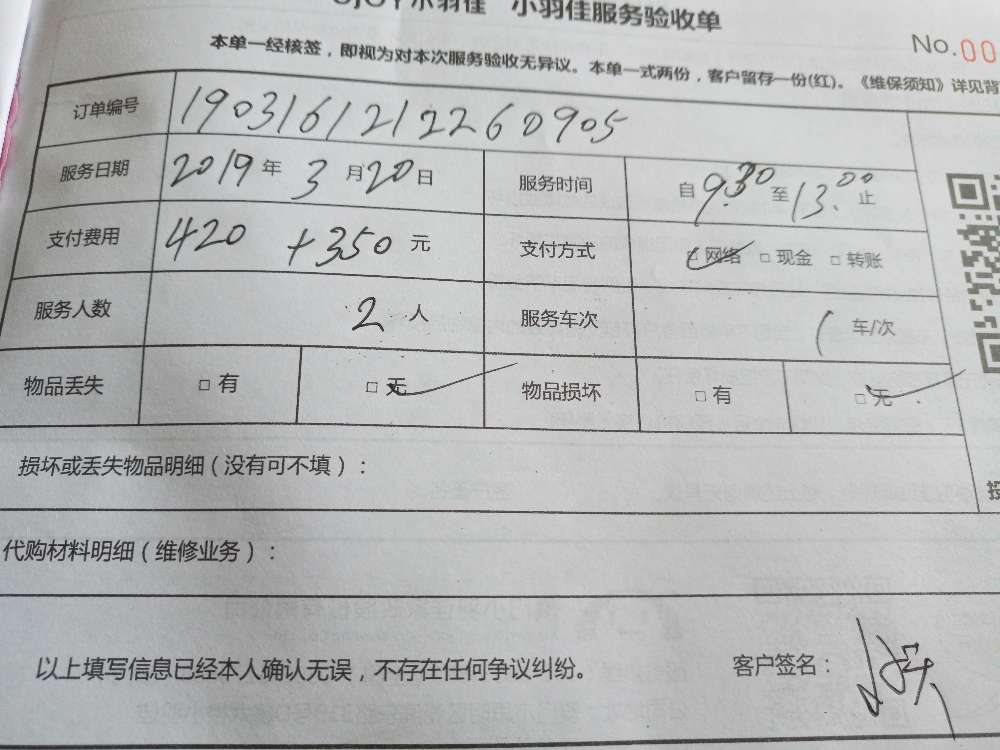 小羽佳 小羽佳服务验收单
No.00
本单一经核签，即视为对本次服务验收无异议。本单一式两份，客户留存一份(红)。《维保须知》详见背
订单编号 1903161212260905
服务日期 2019年3月20日 服务时间 自9:30至13:00止
支付费用 420 +350元 支付方式 □网络 □现金 □转账
服务人数 2人 服务车次 1车/次
物品丢失 □有 □无 物品损坏 □有 □无
损坏或丢失物品明细（没有可不填）：
代购材料明细（维修业务）：
以上填写信息已经本人确认无误，不存在任何争议纠纷。 客户签名：